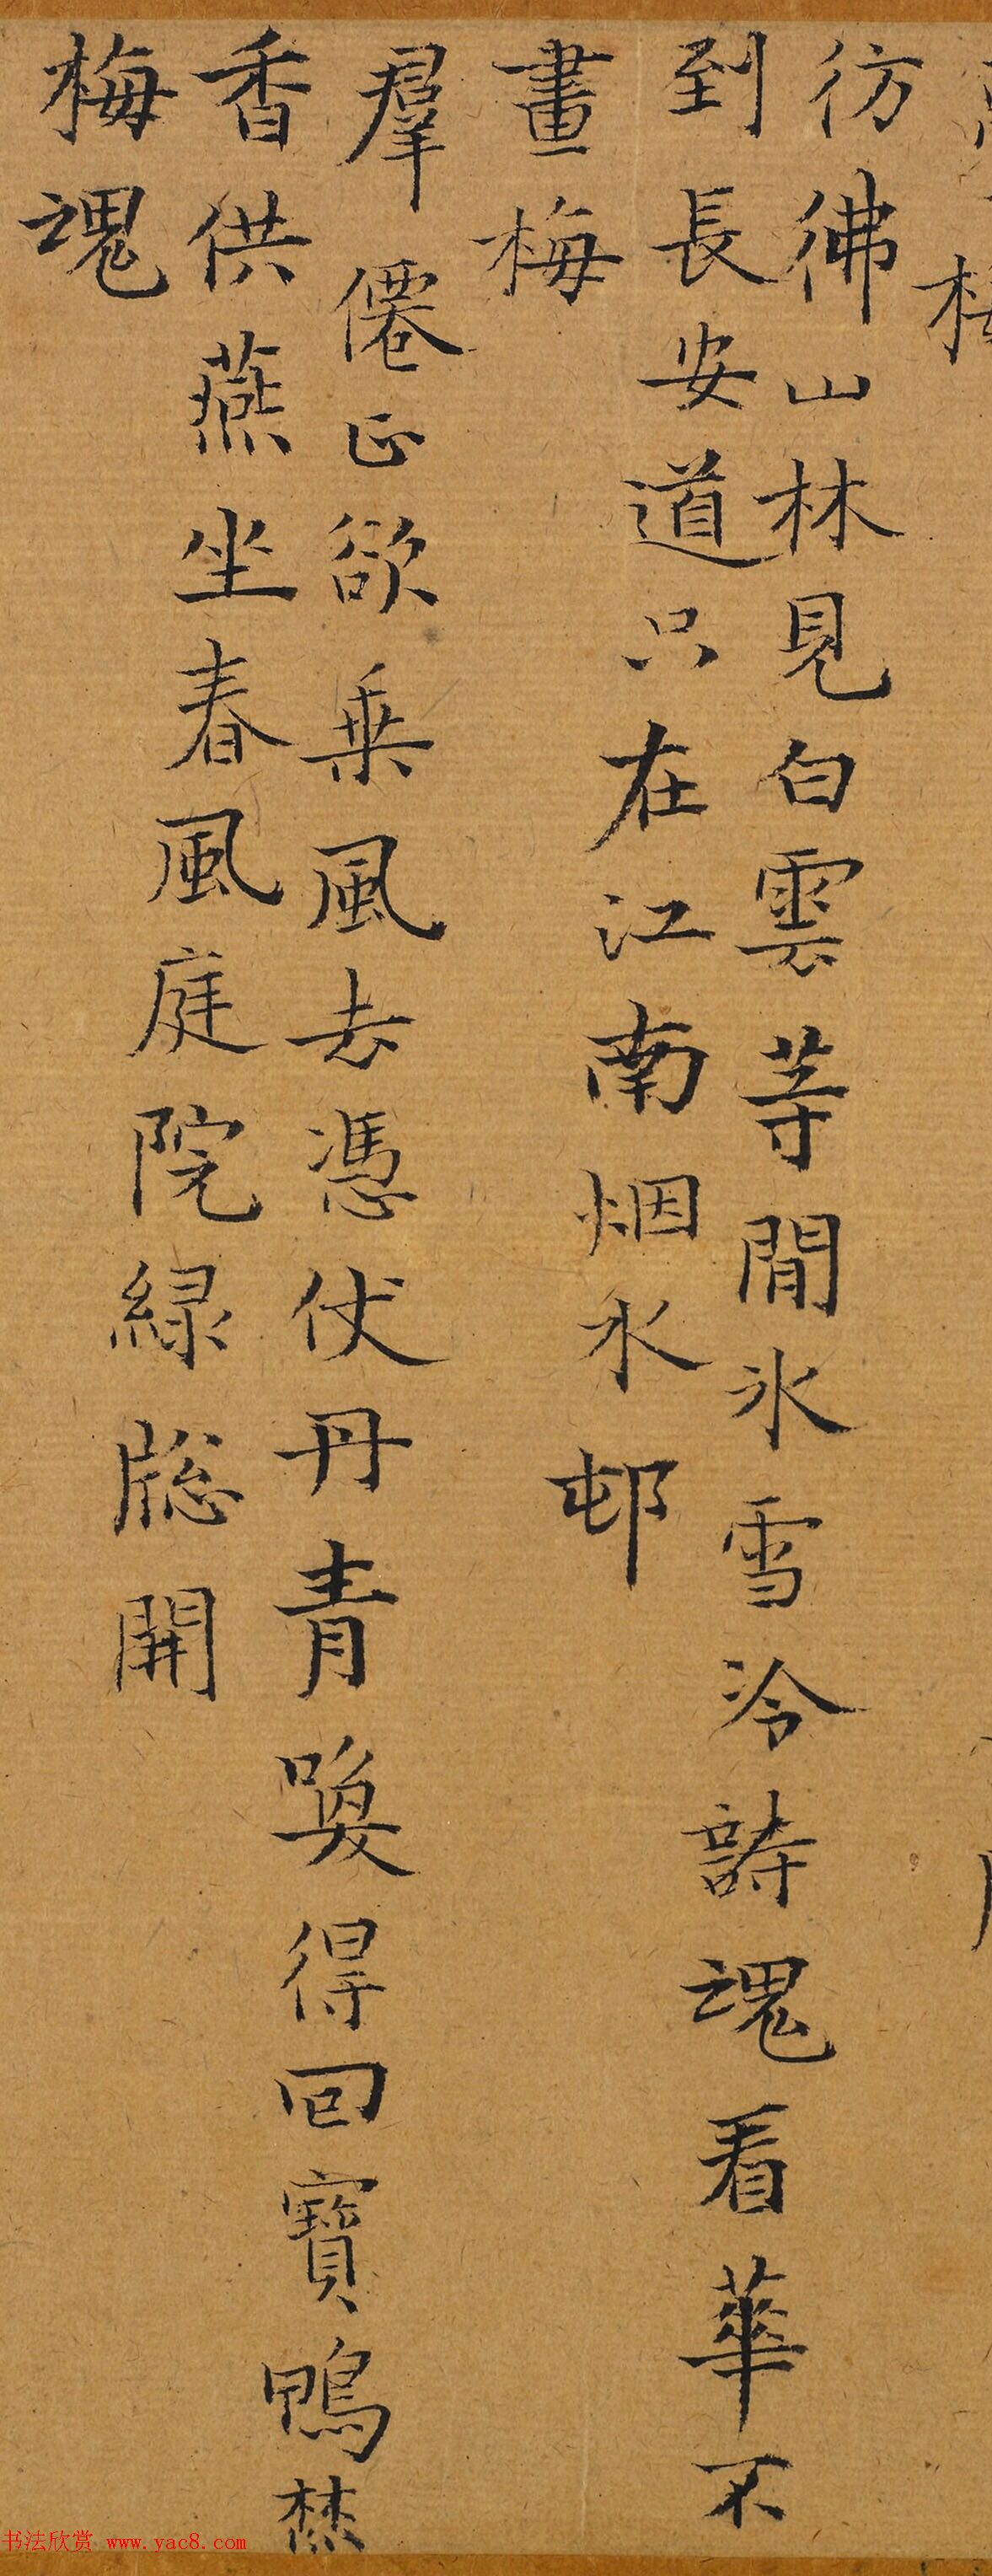 梅
彷彿山林見白雲等閒氷雪冷詩魂看華不
到長安道只在江南烟水邨
畫梅
羣僊正欲乗風去憑仗丹青喚得回寶鴨焚
香供燕坐春風庭院緑牕開
梅魂
书法欣赏 www.yac8.com